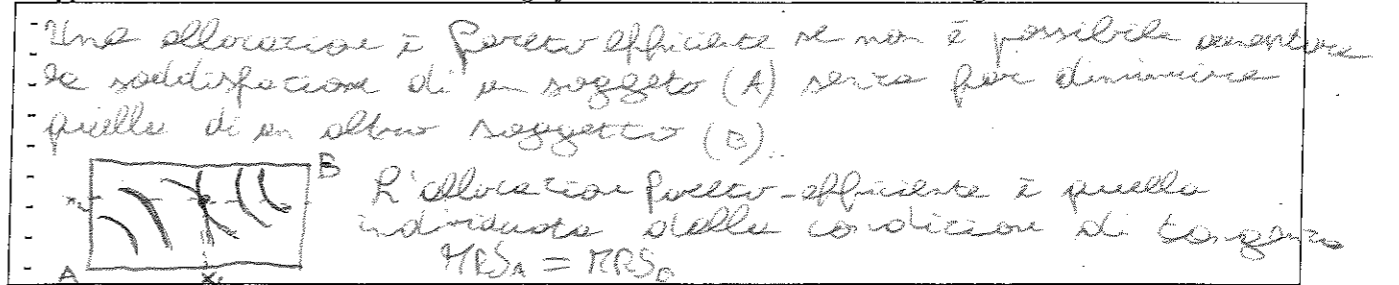 Una allocazione è Pareto efficiente se non è possibile aumentare
la soddisfazione di un soggetto (A) senza far diminuire
quella di un altro soggetto (B).
B
L'allocazione Pareto-efficiente è quella
x₂
individuata dalla condizione di tangenza
MRS_A = MRS_B
A
x₁